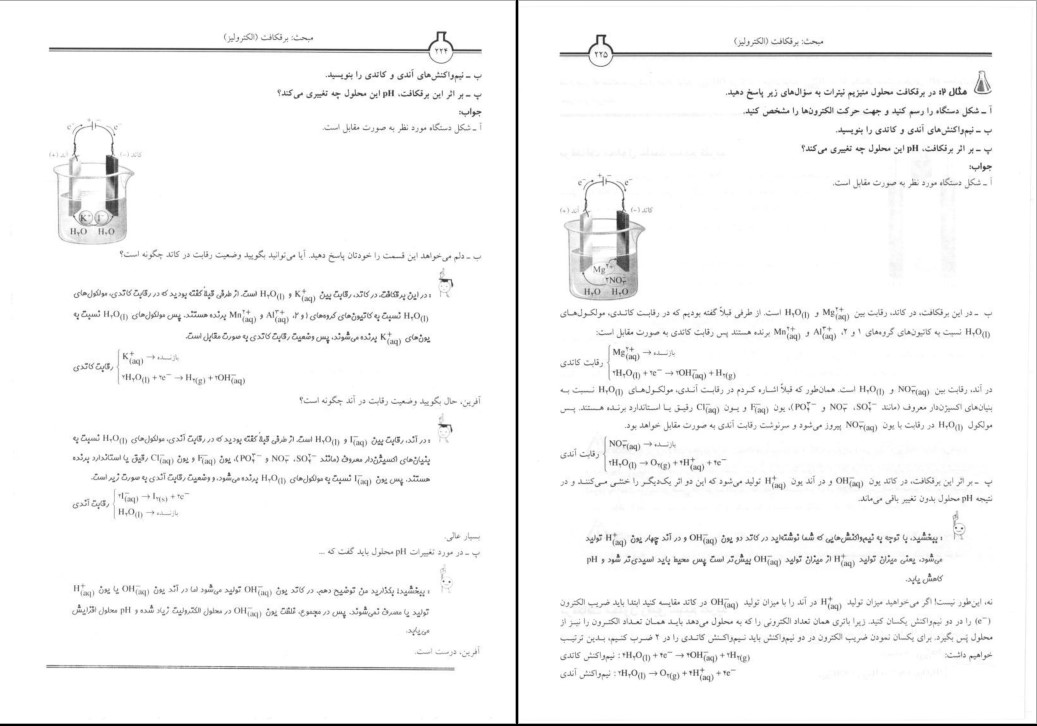 مبحث: برقکافت (الکترولیز)
۲۲۴
ب ـ نیم‌واکنش‌های آندی و کاتدی را بنویسید.
پ ـ بر اثر این برقکافت، pH این محلول چه تغییری می‌کند؟
جواب:
آ ـ شکل دستگاه مورد نظر به صورت مقابل است.
e⁻ − + e⁻
کاتد (−) آند (+)
K⁺ I⁻
H₂O H₂O
ب ـ دلم می‌خواهد این قسمت را خودتان پاسخ دهید. آیا می‌توانید بگویید وضعیت رقابت در کاتد چگونه است؟
: در این برقکافت، در کاتد، رقابت بین K⁺(aq) و H₂O(l) است. از طرفی قبلاً گفته بودید که در رقابت کاتدی، مولکول‌های
H₂O(l) نسبت به کاتیون‌های گروه‌های ۱ و ۲، Al³⁺(aq) و Mn²⁺(aq) برنده هستند. پس مولکول‌های H₂O(l) نسبت به
یون‌های K⁺(aq) برنده می‌شوند، پس وضعیت رقابت کاتدی به صورت مقابل است.
K⁺(aq) → بازنده
رقابت کاتدی
۲H₂O(l) + ۲e⁻ → H₂(g) + ۲OH⁻(aq)
آفرین، حال بگویید وضعیت رقابت در آند چگونه است؟
: در آند، رقابت بین I⁻(aq) و H₂O(l) است. از طرفی قبلاً گفته بودید که در رقابت آندی، مولکول‌های H₂O(l) نسبت به
بنیان‌های اکسیژن‌دار معروف (مانند SO₄²⁻، NO₃⁻ و PO₄³⁻)، یون F⁻(aq) و یون Cl⁻(aq) رقیق یا استاندارد برنده
هستند. پس یون I⁻(aq) نسبت به مولکول‌های H₂O(l) برنده می‌شود، و وضعیت رقابت آندی به صورت زیر است.
۲I⁻(aq) → I₂(s) + ۲e⁻
رقابت آندی
H₂O(l) → بازنده
بسیار عالی.
پ ـ در مورد تغییرات pH محلول باید گفت که ...
: ببخشید! بگذارید من توضیح دهم. در کاتد یون OH⁻(aq) تولید می‌شود اما در آند یون OH⁻(aq) یا یون H⁺(aq)
تولید یا مصرف نمی‌شوند. پس در مجموع، غلظت یون OH⁻(aq) در محلول الکترولیت زیاد شده و pH محلول افزایش
می‌یابد.
آفرین، درست است.
مبحث: برقکافت (الکترولیز)
۲۲۵
مثال ۲: در برقکافت محلول منیزیم نیترات به سؤال‌های زیر پاسخ دهید.
آ ـ شکل دستگاه را رسم کنید و جهت حرکت الکترون‌ها را مشخص کنید.
ب ـ نیم‌واکنش‌های آندی و کاتدی را بنویسید.
پ ـ بر اثر برقکافت، pH این محلول چه تغییری می‌کند؟
جواب:
آ ـ شکل دستگاه مورد نظر به صورت مقابل است.
e⁻ + − e⁻
کاتد (−) آند (+)
Mg²⁺
۲NO₃⁻
H₂O H₂O
ب ـ در این برقکافت، در کاتد، رقابت بین Mg²⁺(aq) و H₂O(l) است. از طرفی قبلاً گفته بودیم که در رقابت کاتدی، مولکول‌های
H₂O(l) نسبت به کاتیون‌های گروه‌های ۱ و ۲، Al³⁺(aq) و Mn²⁺(aq) برنده هستند پس رقابت کاتدی به صورت مقابل است:
Mg²⁺(aq) → بازنده
رقابت کاتدی
۲H₂O(l) + ۲e⁻ → ۲OH⁻(aq) + H₂(g)
در آند، رقابت بین NO₃⁻(aq) و H₂O(l) است. همان‌طور که قبلاً اشاره کردم در رقابت آندی، مولکول‌های H₂O(l) نسبت به
بنیان‌های اکسیژن‌دار معروف (مانند SO₄²⁻، NO₃⁻ و PO₄³⁻)، یون F⁻(aq) و یون Cl⁻(aq) رقیق یا استاندارد برنده هستند. پس
مولکول H₂O(l) در رقابت با یون NO₃⁻(aq) پیروز می‌شود و سرنوشت رقابت آندی به صورت مقابل خواهد بود.
NO₃⁻(aq) → بازنده
رقابت آندی
۲H₂O(l) → O₂(g) + ۴H⁺(aq) + ۴e⁻
پ ـ بر اثر این برقکافت، در کاتد یون OH⁻(aq) و در آند یون H⁺(aq) تولید می‌شود که این دو اثر یک‌دیگر را خنثی می‌کنند و در
نتیجه pH محلول بدون تغییر باقی می‌ماند.
: ببخشید، با توجه به نیم‌واکنش‌هایی که شما نوشته‌اید در کاتد دو یون OH⁻(aq) و در آند چهار یون H⁺(aq) تولید
می‌شود، یعنی میزان تولید H⁺(aq) از میزان تولید OH⁻(aq) بیش‌تر است پس محیط باید اسیدی‌تر شود و pH
کاهش یابد.
نه، این‌طور نیست! اگر می‌خواهید میزان تولید H⁺(aq) در آند را با میزان تولید OH⁻(aq) در کاتد مقایسه کنید ابتدا باید ضریب الکترون
(e⁻) را در دو نیم‌واکنش یکسان کنید. زیرا باتری همان تعداد الکترونی را که به محلول می‌دهد باید همان تعداد الکترون را نیز از
محلول پس بگیرد. برای یکسان نمودن ضریب الکترون در دو نیم‌واکنش باید نیم‌واکنش کاتدی را در ۲ ضرب کنیم، بدین ترتیب
خواهیم داشت:
نیم‌واکنش کاتدی : ۴H₂O(l) + ۴e⁻ → ۴OH⁻(aq) + ۲H₂(g)
نیم‌واکنش آندی : ۲H₂O(l) → O₂(g) + ۴H⁺(aq) + ۴e⁻